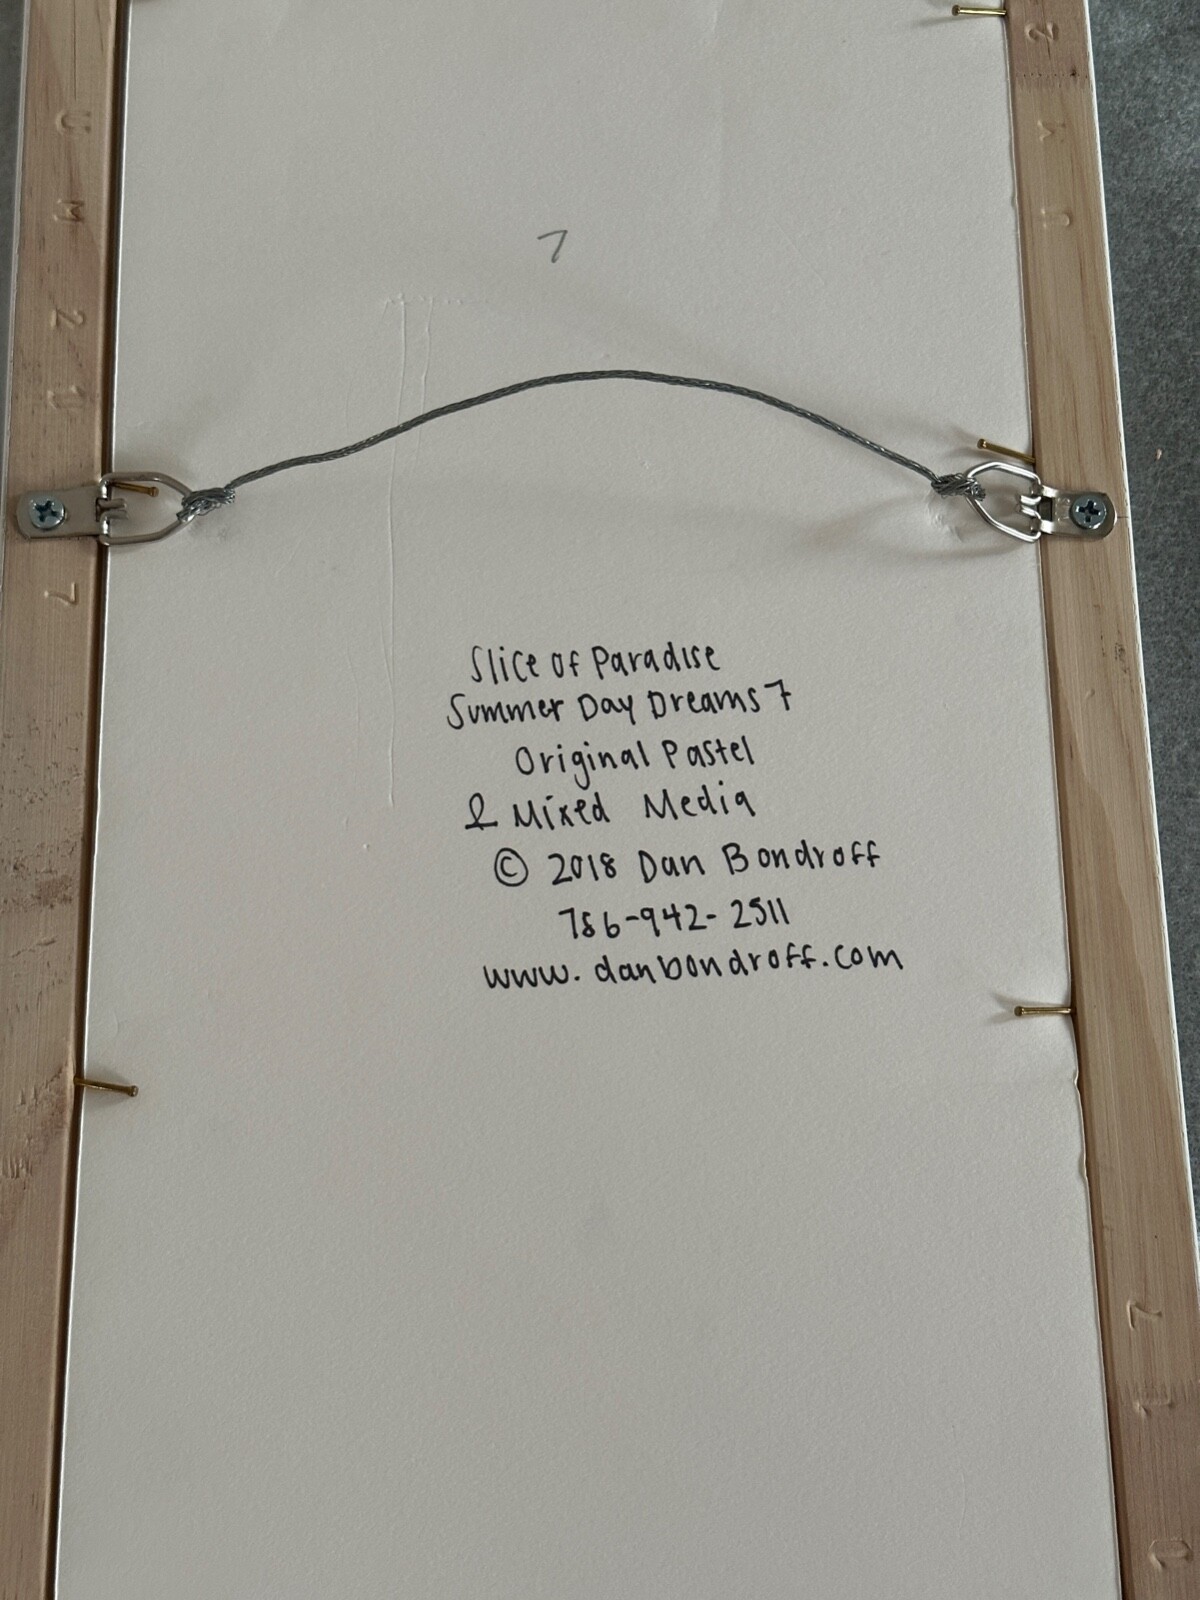 7
Slice of Paradise
Summer Day Dreams 7
Original Pastel
& Mixed Media
© 2018 Dan Bondroff
786-942-2511
www.danbondroff.com